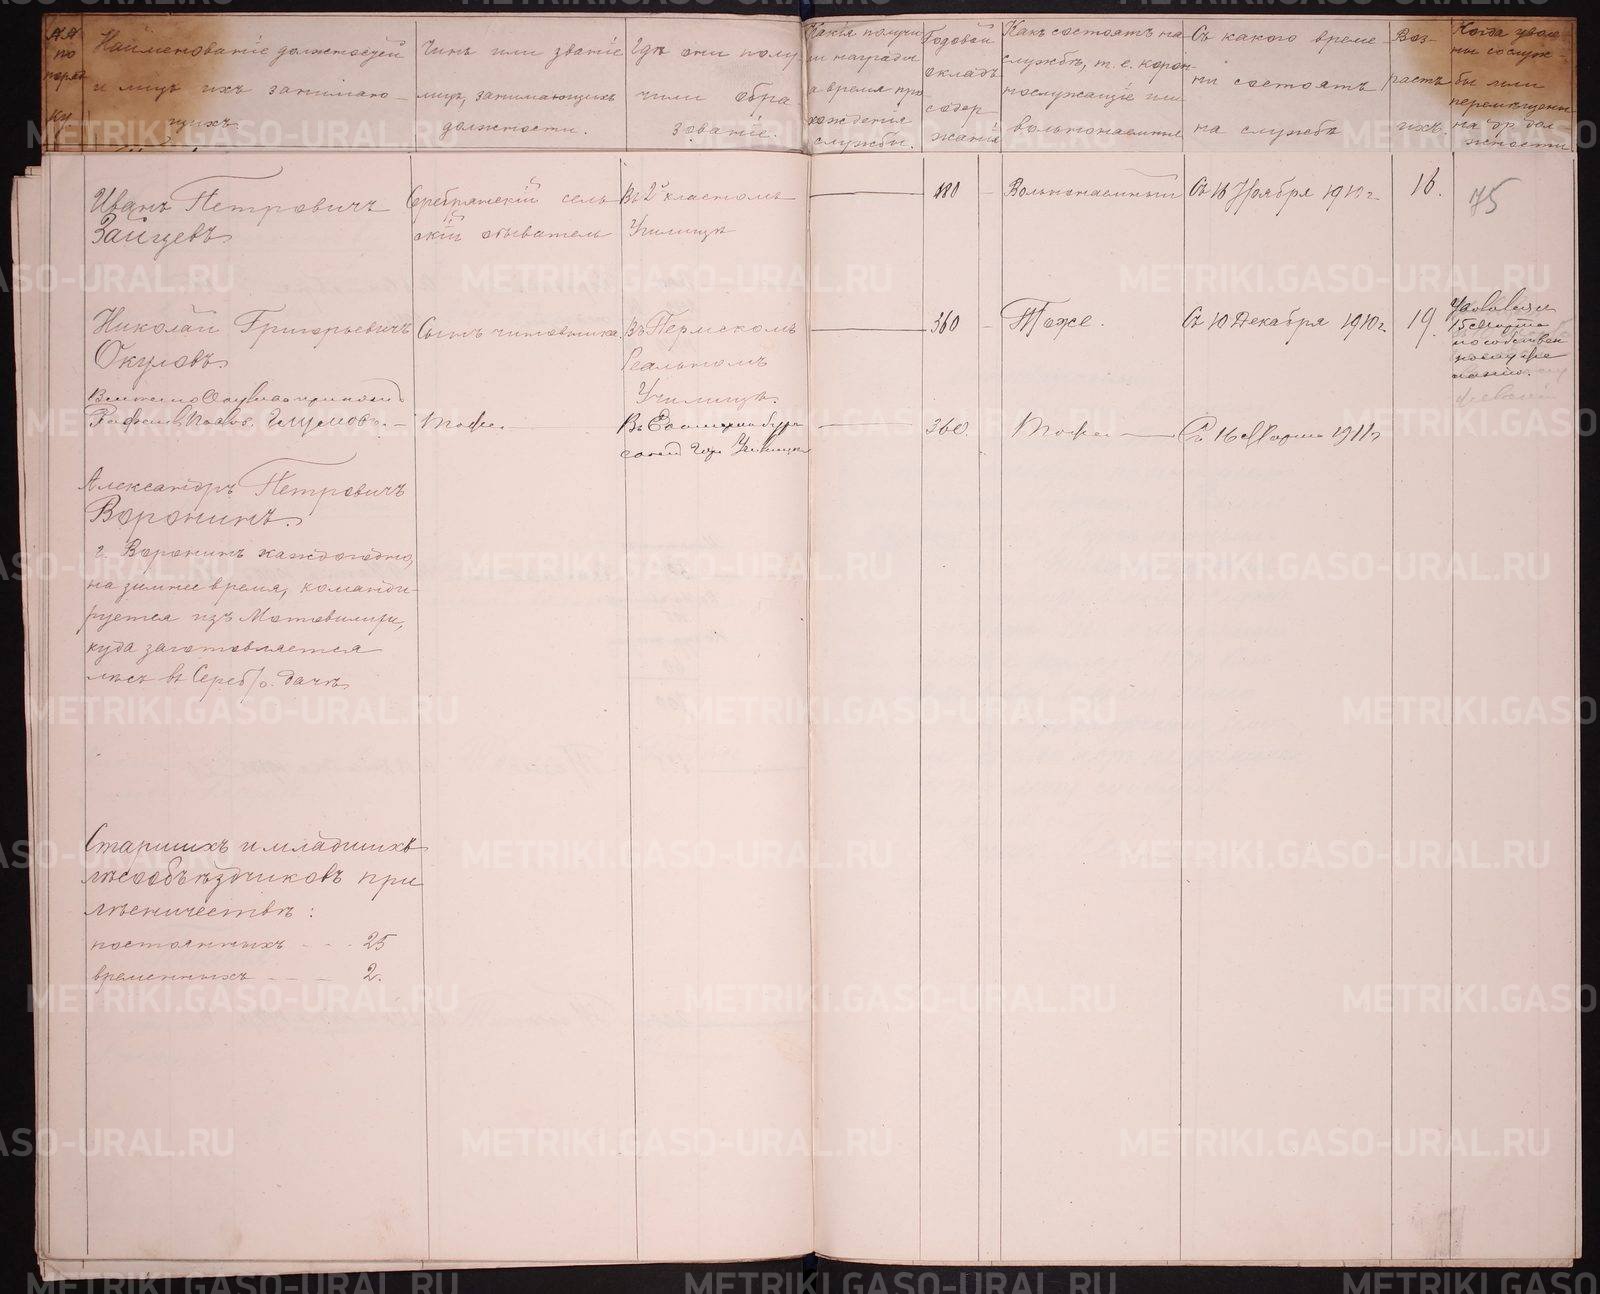 №№ по поряд ку
Наименованіе должностей
и лицъ ихъ занимаю-
щихъ
Чинъ или званіе
лицъ, занимающихъ
должности.
Гдѣ они полу-
чили обра
зованіе.
Какія получи
ли награды
во время про
хожденія
службы.
Годовой
окладъ
содер
жанія
Какъ состоятъ на
службѣ, т. е. корон-
нослужащіе или
вольнонаемные
Съ какого време-
ни состоятъ
на службѣ
Воз-
растъ
ихъ.
Когда увол
ены со служ
бы или
перемѣщены
на др дол
жности
75
Иванъ Петровичъ
Зайцевъ
Серебрянскій сель
скій обыватель
Въ 2х классномъ
Училищѣ
180
Вольнонаемный
Съ 18 Ноября 1910 г
16.
Николай Григорьевичъ
Окуловъ
Сынъ чиновника
Въ Пермскомъ
Реальномъ
Училищѣ.
360
Тоже.
Съ 10 Декабря 1910 г.
19.
Уволенъ
15 Марта
по собствен
ному же
ланію.
Вмѣсто Окулова принятъ
Тоже.
Въ Екатеринбург
ском Гор Училищѣ
360.
Тоже.
Съ 16 Марта 1911 г
Александръ Петровичъ
Воронинъ.
г. Воронинъ каждогодно,
на зимнее время, команди-
руется изъ Мотовилихи,
куда заготовляется
лѣсъ въ Сереб/о. дачѣ
Старшихъ и младшихъ
лѣсообъѣздчиковъ при
лѣсничествѣ:
постоянныхъ - - . 25
временныхъ - - - 2.
METRIKI.GASO-URAL.RU